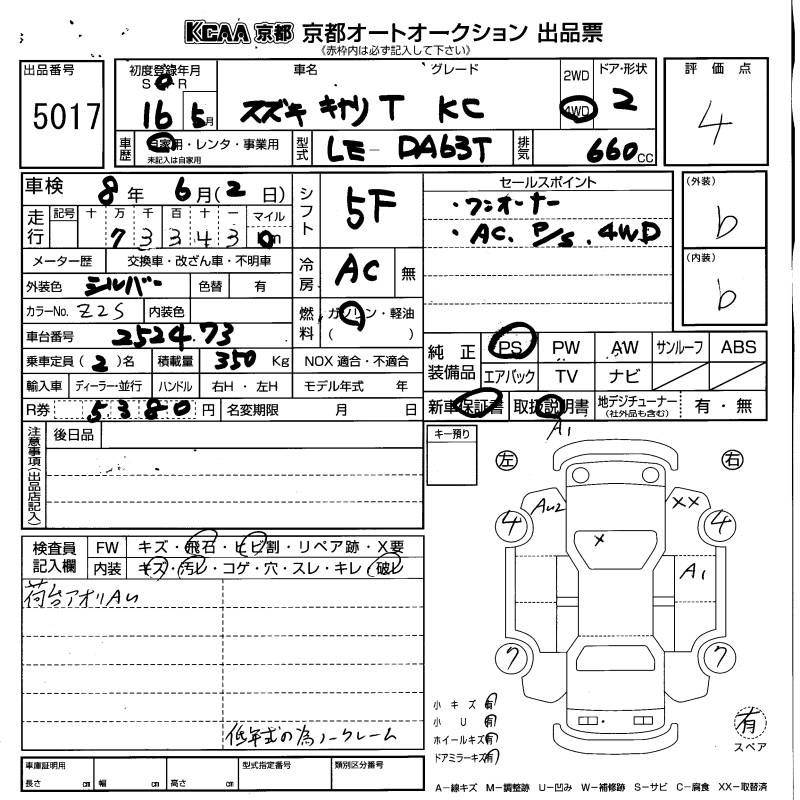 KCAA 京都 京都オートオークション 出品票
(赤枠内は必ず記入して下さい)
出品番号
5017
初度登録年月 車名 グレード 2WD ドア・形状
S H R
16 5月 スズキ キャリT KC 4WD 2
車歴 自家用・レンタ・事業用 型式 LE-DA63T 排気 660cc
未記入は自家用
評価点
4
車検 8年 6月(2日)
シフト 5F
走行 記号 十 万 千 百 十 一 マイル
7 3 3 4 3 0 km
メーター歴 交換車・改ざん車・不明車
冷房 AC 無
外装色 シルバー 色替 有
カラーNo. Z2S 内装色
燃料 ガソリン・軽油
( )
車台番号 252473
乗車定員(2)名 積載量 350 Kg NOX 適合・不適合
輸入車 ディーラー・並行 ハンドル 右H・左H モデル年式 年
R券 5380円 名変期限 月 日
セールスポイント
・ワンオーナー
・AC. P/S. 4WD
(外装)
b
(内装)
b
純正装備品 PS PW AW サンルーフ ABS
エアバック TV ナビ
新車保証書 取扱説明書 地デジチューナー 有・無
(社外品も含む)
注意事項(出品店記入)
後日品
キー預り
検査員記入欄 FW キズ・飛石・ヒビ割・リペア跡・X要
内装 キズ・汚レ・コゲ・穴・スレ・キレ・破レ
荷台アオリAU
低年式の為ノークレーム
A1
左 右
AU2 XX
4 4
X
A1
7 7
小キズ 有
小U 有
ホイールキズ 有
ドアミラーキズ 有
有
スペア
車庫証明用 型式指定番号 類別区分番号
長さ cm 幅 cm 高さ cm
A-線キズ M-調整跡 U-凹み W-補修跡 S-サビ C-腐食 XX-取替済